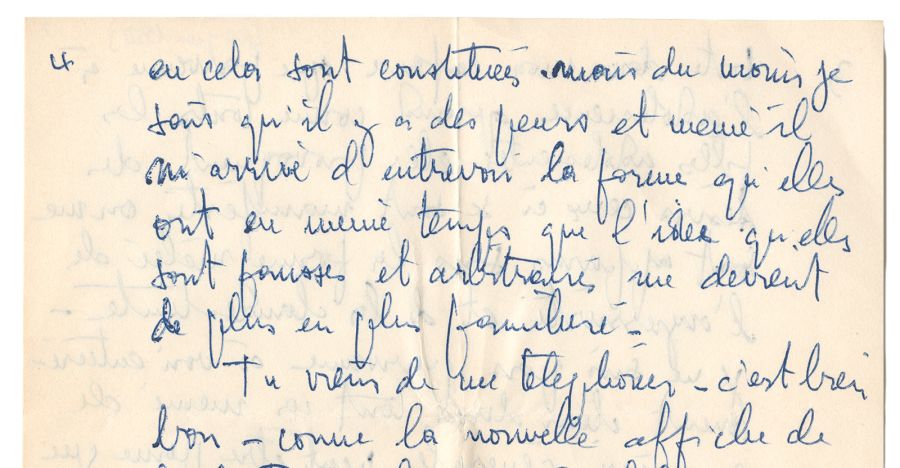 4 en cela sont constitués mais du moins je
sais qu'il y a des peurs et même il
m'arrive d'entrevoir la forme qu'elles
ont en même temps que l'idée qu'elles
sont fausses et arbitraires me devient
de plus en plus familière -
Tu viens de me téléphoner - c'est bien
bon - comme la nouvelle affiche de